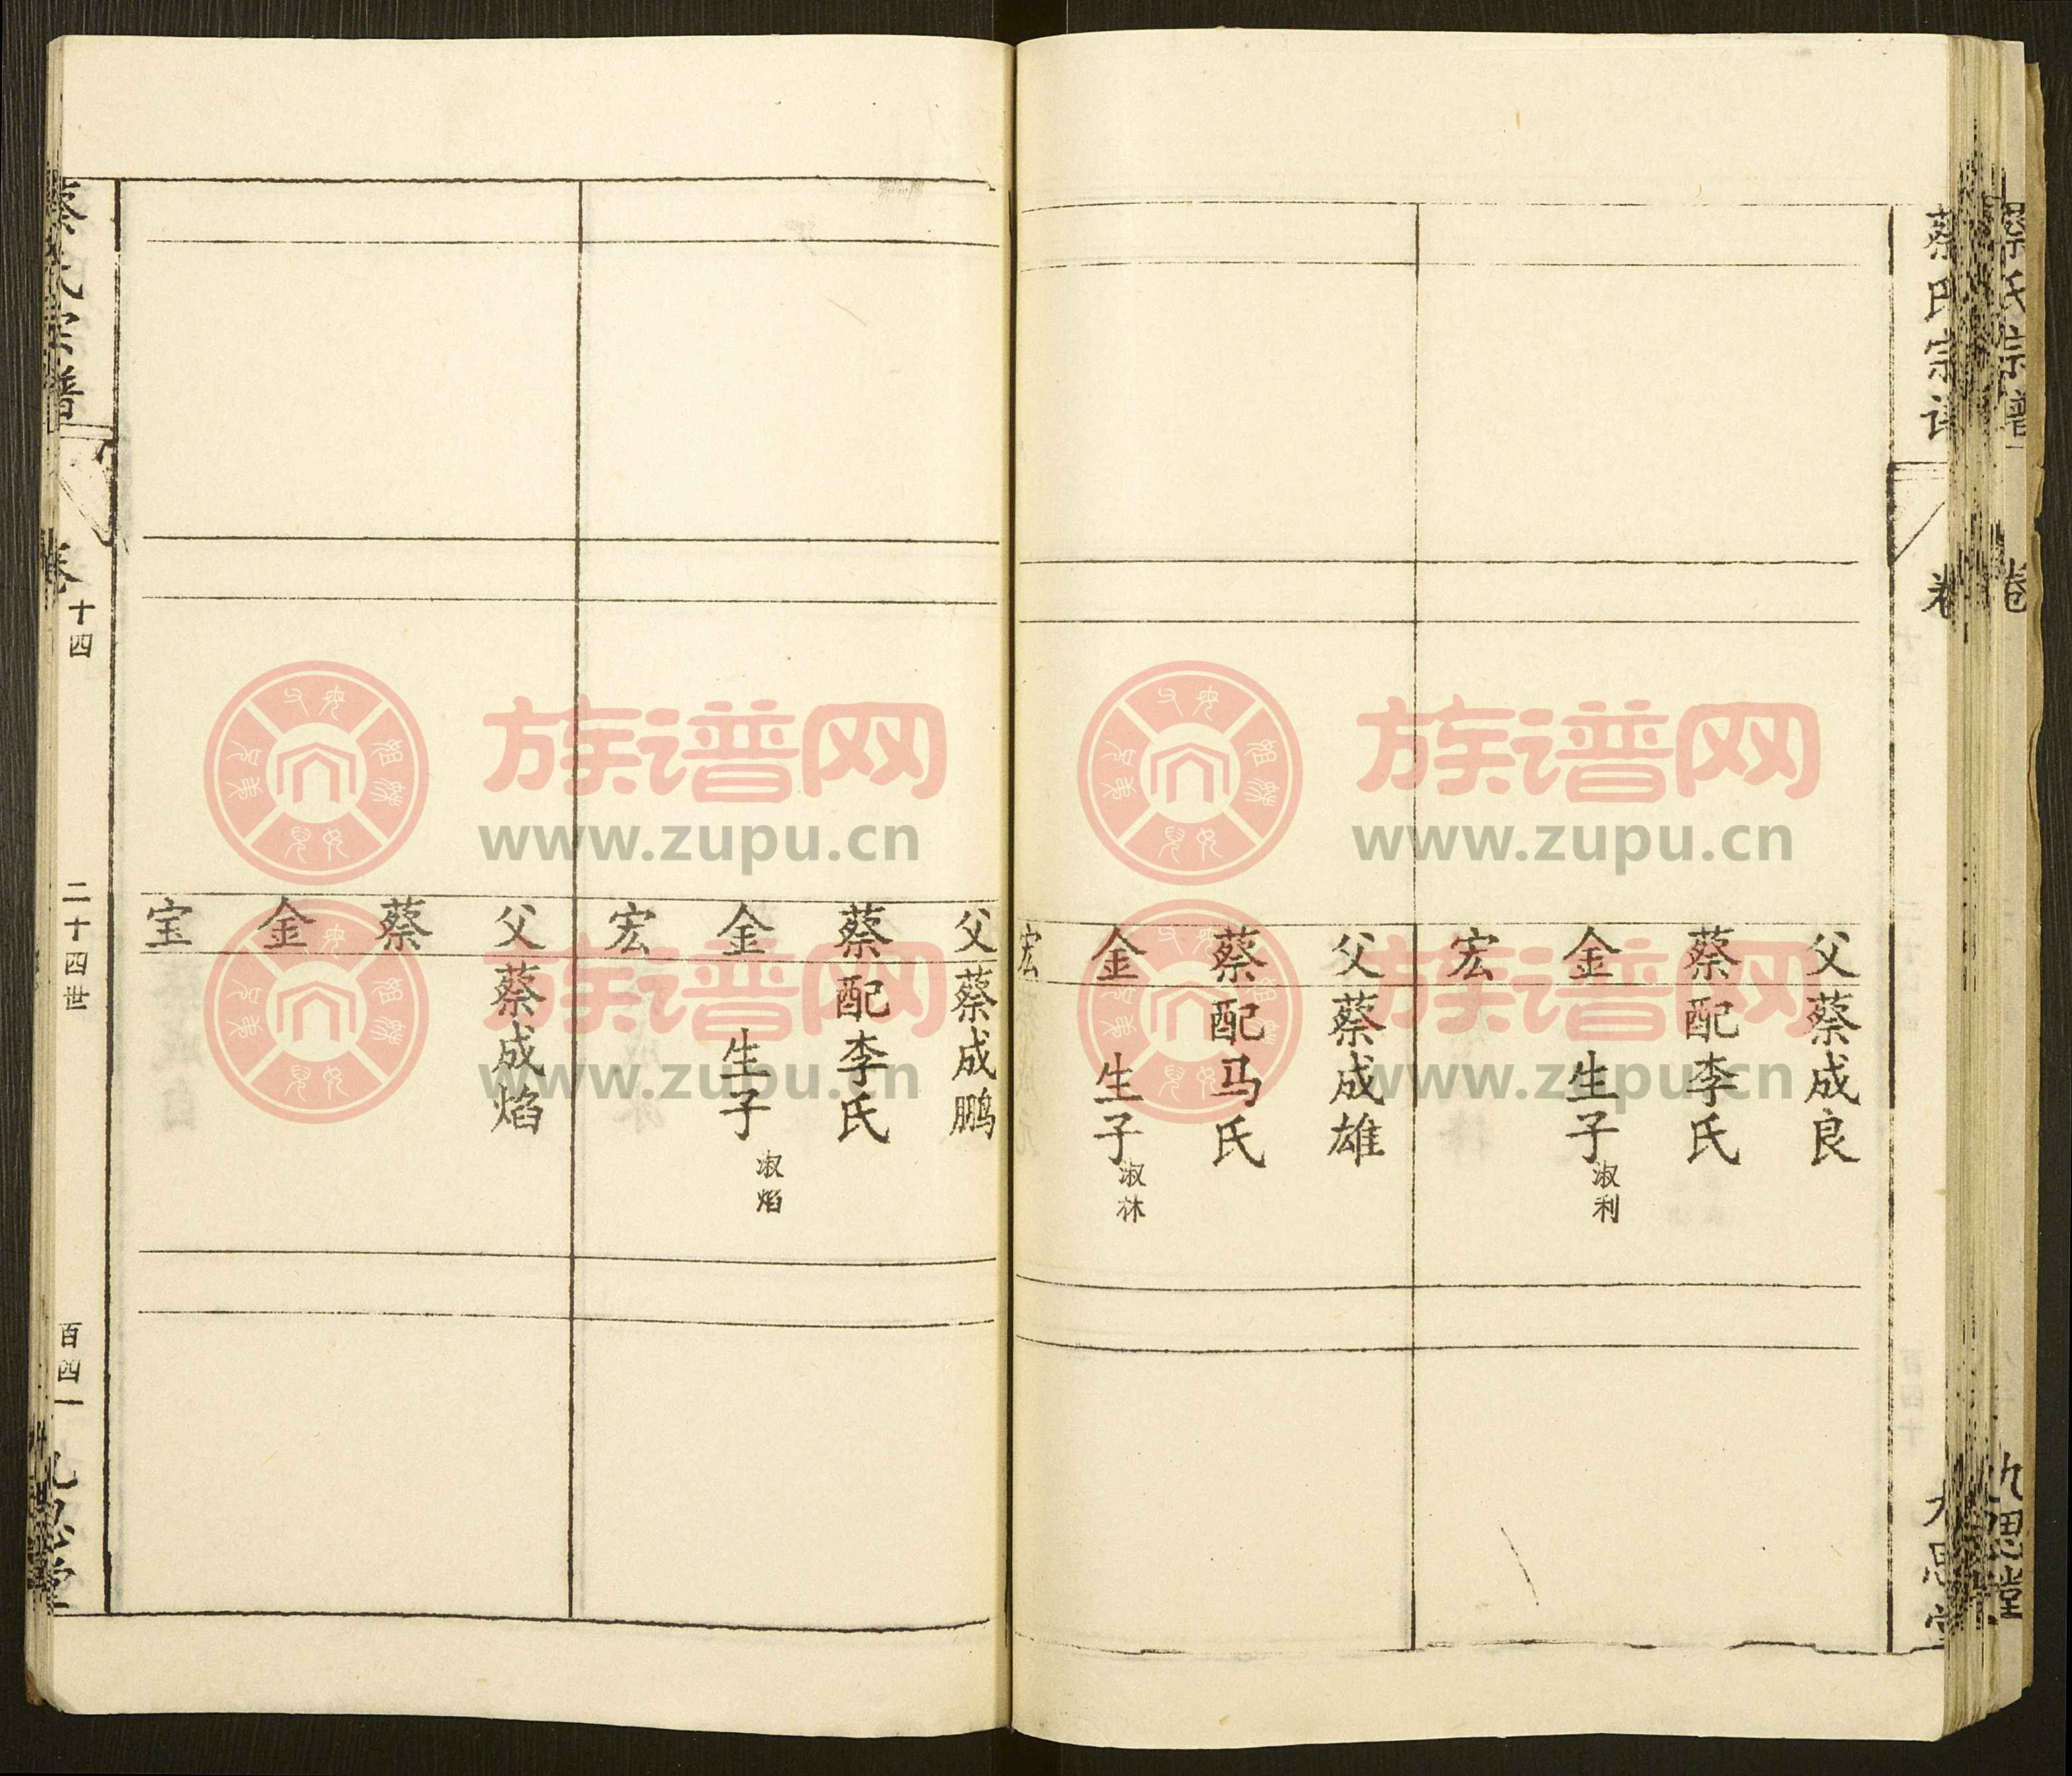 蔡氏宗谱
卷
九思堂
父蔡成良
蔡配李氏
金生子淑利
宏
父蔡成雄
蔡配马氏
金生子淑林
宏
父蔡成鹏
蔡配李氏
金生子淑焰
宏
父蔡成焰
蔡
金
宝
蔡氏宗譜
卷十四
二十四世
百四一
九思堂
族谱网
www.zupu.cn
族谱网
www.zupu.cn
族谱网
www.zupu.cn
族谱网
www.zupu.cn